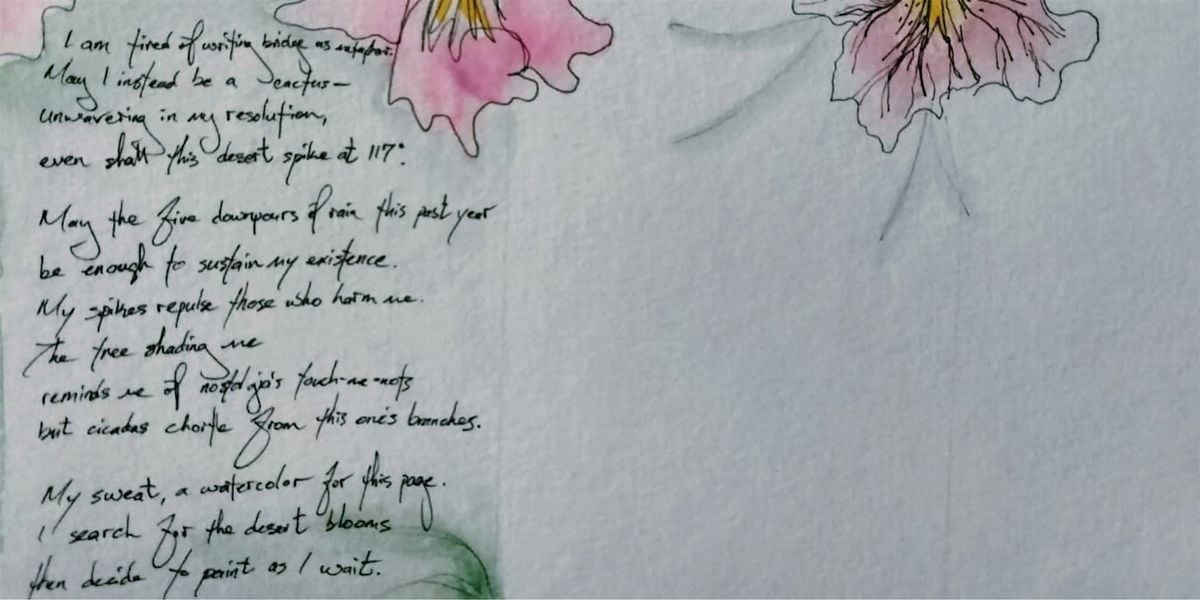 I am tired of writing bridge as metaphor.
May I instead be a cactus—
unwavering in my resolution,
even shall this desert spike at 117°.
May the five downpours of rain this past year
be enough to sustain my existence.
My spikes repulse those who harm me.
The tree shading me
reminds me of nostalgia's touch-me-nots
but cicadas chortle from this one's branches.
My sweat, a watercolor for this page.
I search for the desert blooms
then decide to paint as I wait.